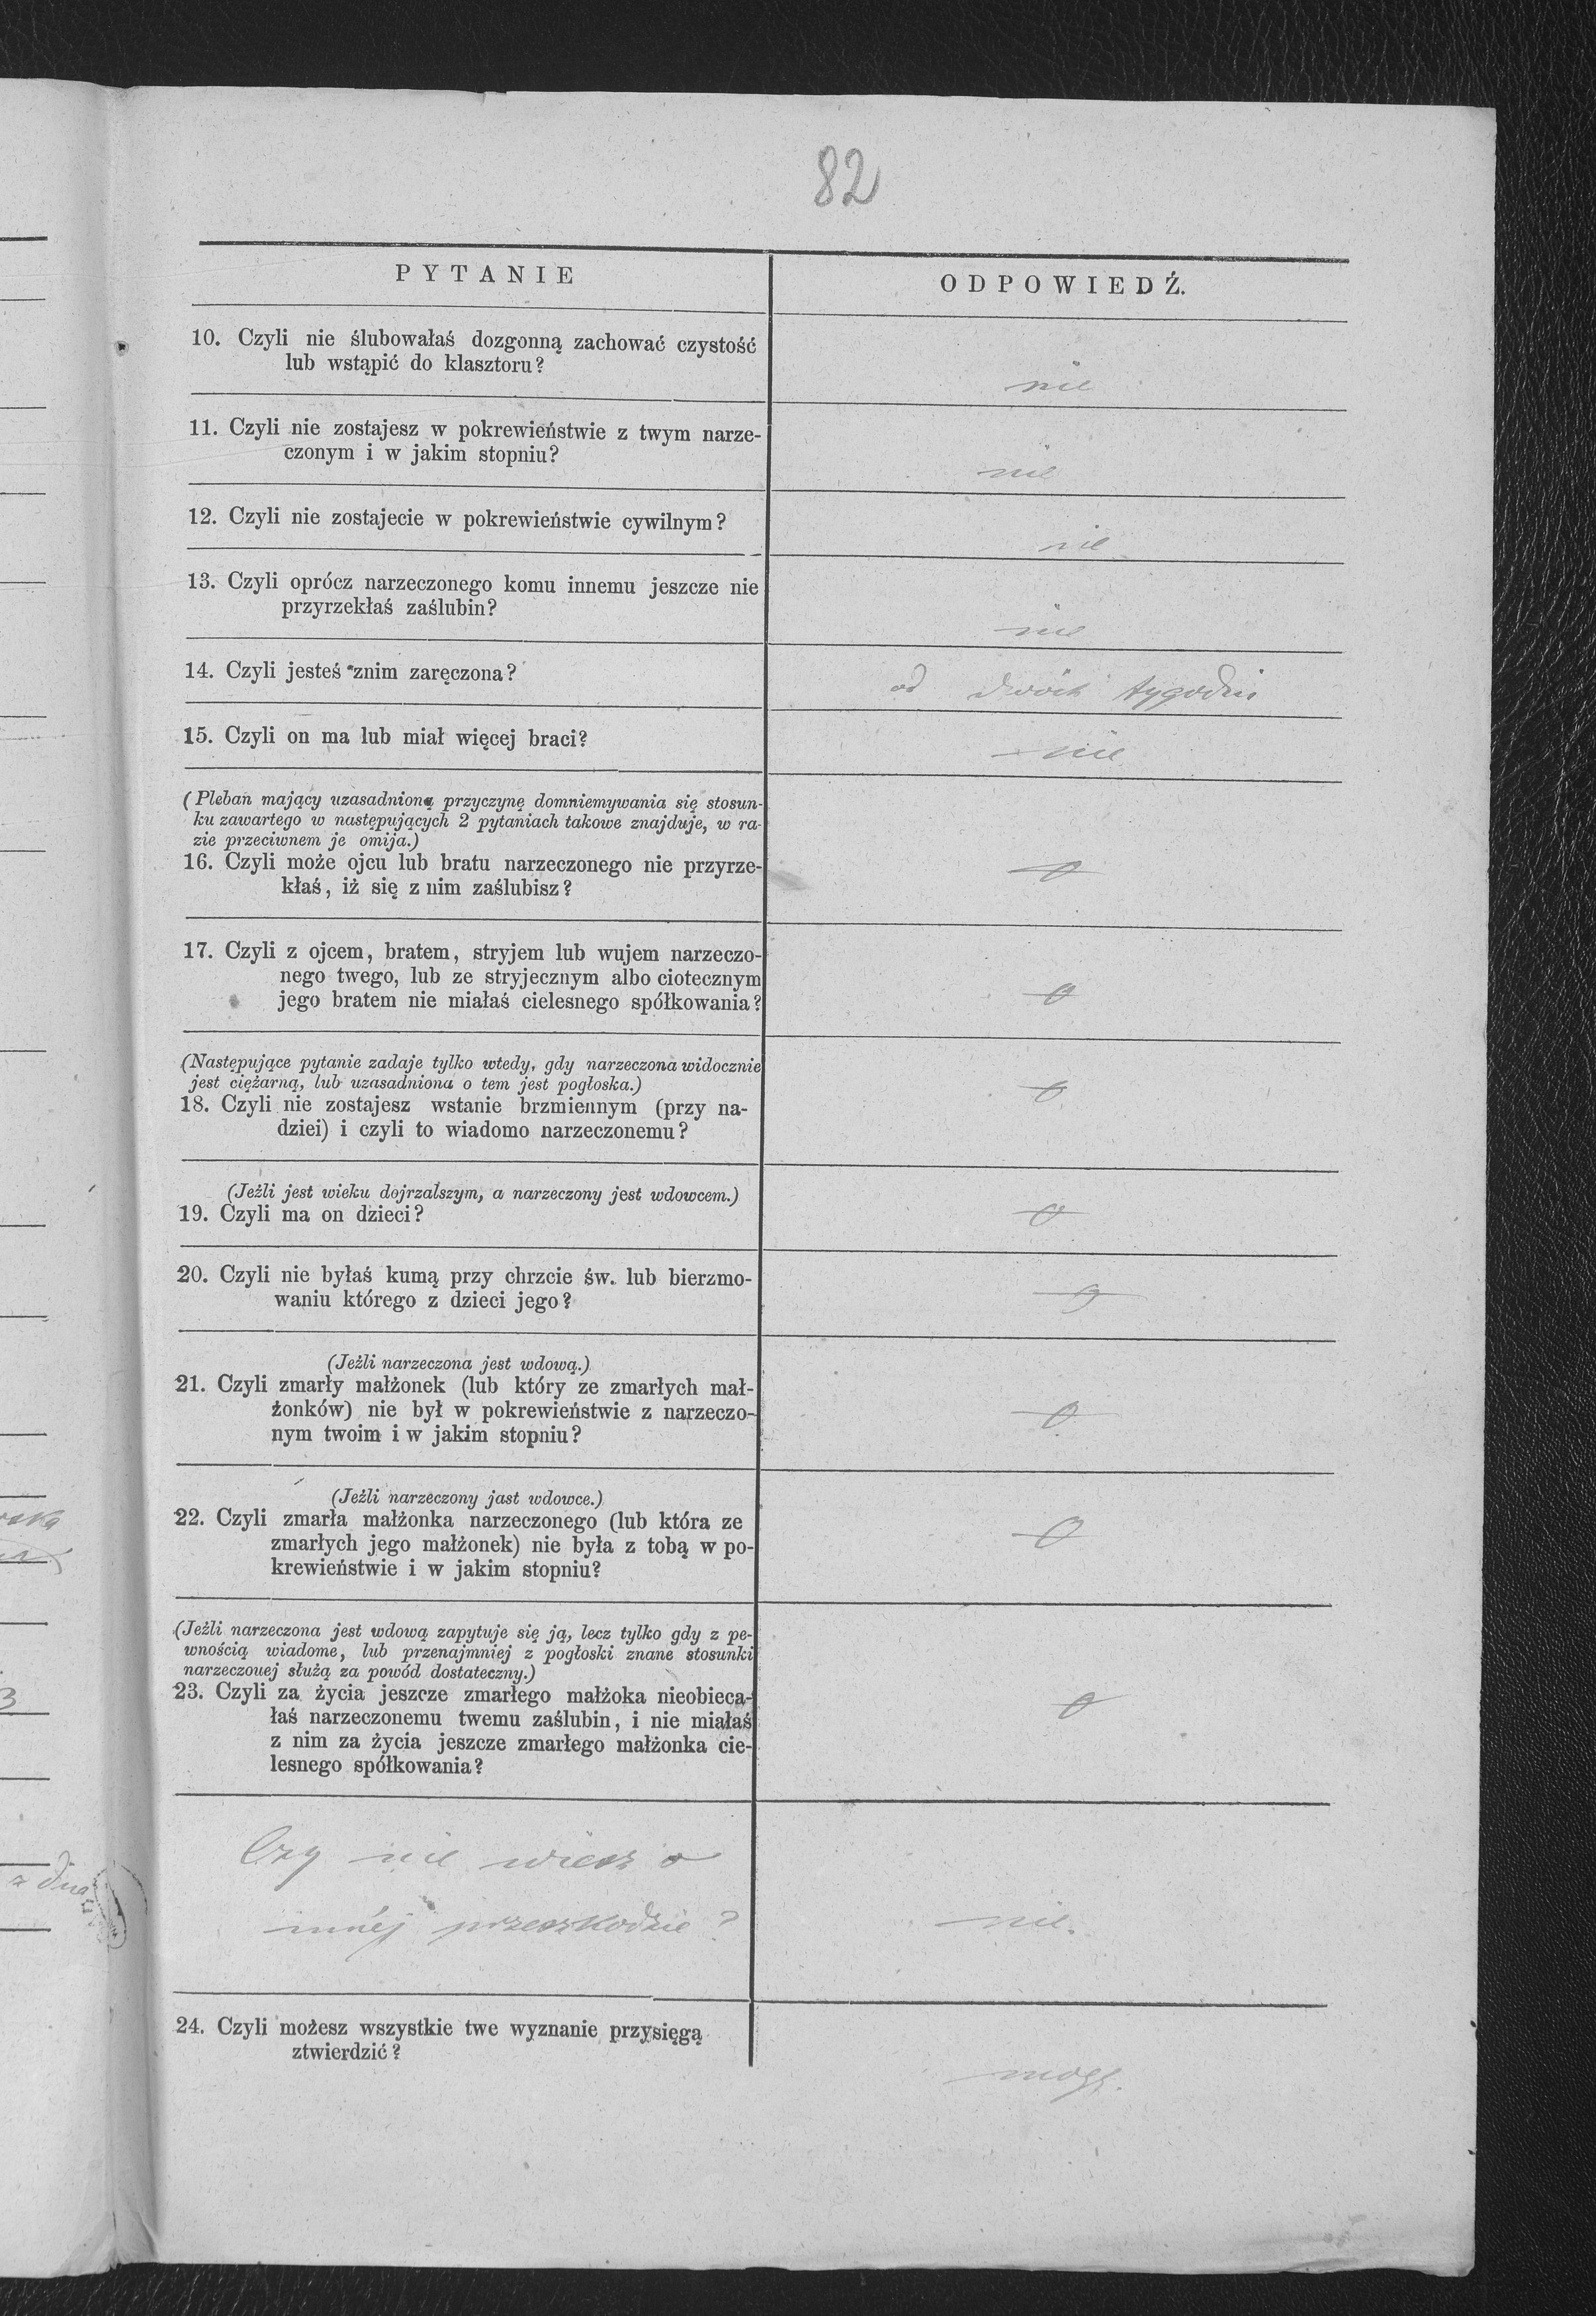 82
PYTANIE
ODPOWIEDŹ.
10. Czyli nie ślubowałaś dozgonną zachować czystość
lub wstąpić do klasztoru?
nie
11. Czyli nie zostajesz w pokrewieństwie z twym narze-
czonym i w jakim stopniu?
nie
12. Czyli nie zostajecie w pokrewieństwie cywilnym?
nie
13. Czyli oprócz narzeczonego komu innemu jeszcze nie
przyrzekłaś zaślubin?
nie
14. Czyli jesteś znim zaręczona?
od dwóch tygodni
15. Czyli on ma lub miał więcej braci?
nie
(Pleban mający uzasadnioną przyczynę domniemywania się stosun-
ku zawartego w następujących 2 pytaniach takowe znajduje, w ra-
zie przeciwnem je omija.)
16. Czyli może ojcu lub bratu narzeczonego nie przyrze-
kłaś, iż się z nim zaślubisz?
0
17. Czyli z ojcem, bratem, stryjem lub wujem narzeczo-
nego twego, lub ze stryjecznym albo ciotecznym
jego bratem nie miałaś cielesnego spółkowania?
0
(Następujące pytanie zadaje tylko wtedy, gdy narzeczona widocznie
jest ciężarną, lub uzasadniona o tem jest pogłoska.)
18. Czyli nie zostajesz wstanie brzmiennym (przy na-
dziei) i czyli to wiadomo narzeczonemu?
0
(Jeżli jest wieku dojrzalszym, a narzeczony jest wdowcem.)
19. Czyli ma on dzieci?
0
20. Czyli nie byłaś kumą przy chrzcie św. lub bierzmo-
waniu którego z dzieci jego?
0
(Jeżli narzeczona jest wdową.)
21. Czyli zmarły małżonek (lub który ze zmarłych mał-
żonków) nie był w pokrewieństwie z narzeczo-
nym twoim i w jakim stopniu?
0
(Jeżli narzeczony jast wdowce.)
22. Czyli zmarła małżonka narzeczonego (lub która ze
zmarłych jego małżonek) nie była z tobą w po-
krewieństwie i w jakim stopniu?
0
(Jeżli narzeczona jest wdową zapytuje się ją, lecz tylko gdy z pe-
wnością wiadome, lub przenajmniej z pogłoski znane stosunki
narzeczouej służą za powód dostateczny.)
23. Czyli za życia jeszcze zmarłego małżoka nieobieca-
łaś narzeczonemu twemu zaślubin, i nie miałaś
z nim za życia jeszcze zmarłego małżonka cie-
lesnego spółkowania?
0
Czy nie wiesz o
innéj przeszkodzie?
nie.
24. Czyli możesz wszystkie twe wyznanie przysięgą
ztwierdzić?
mogę.
3
z dnia